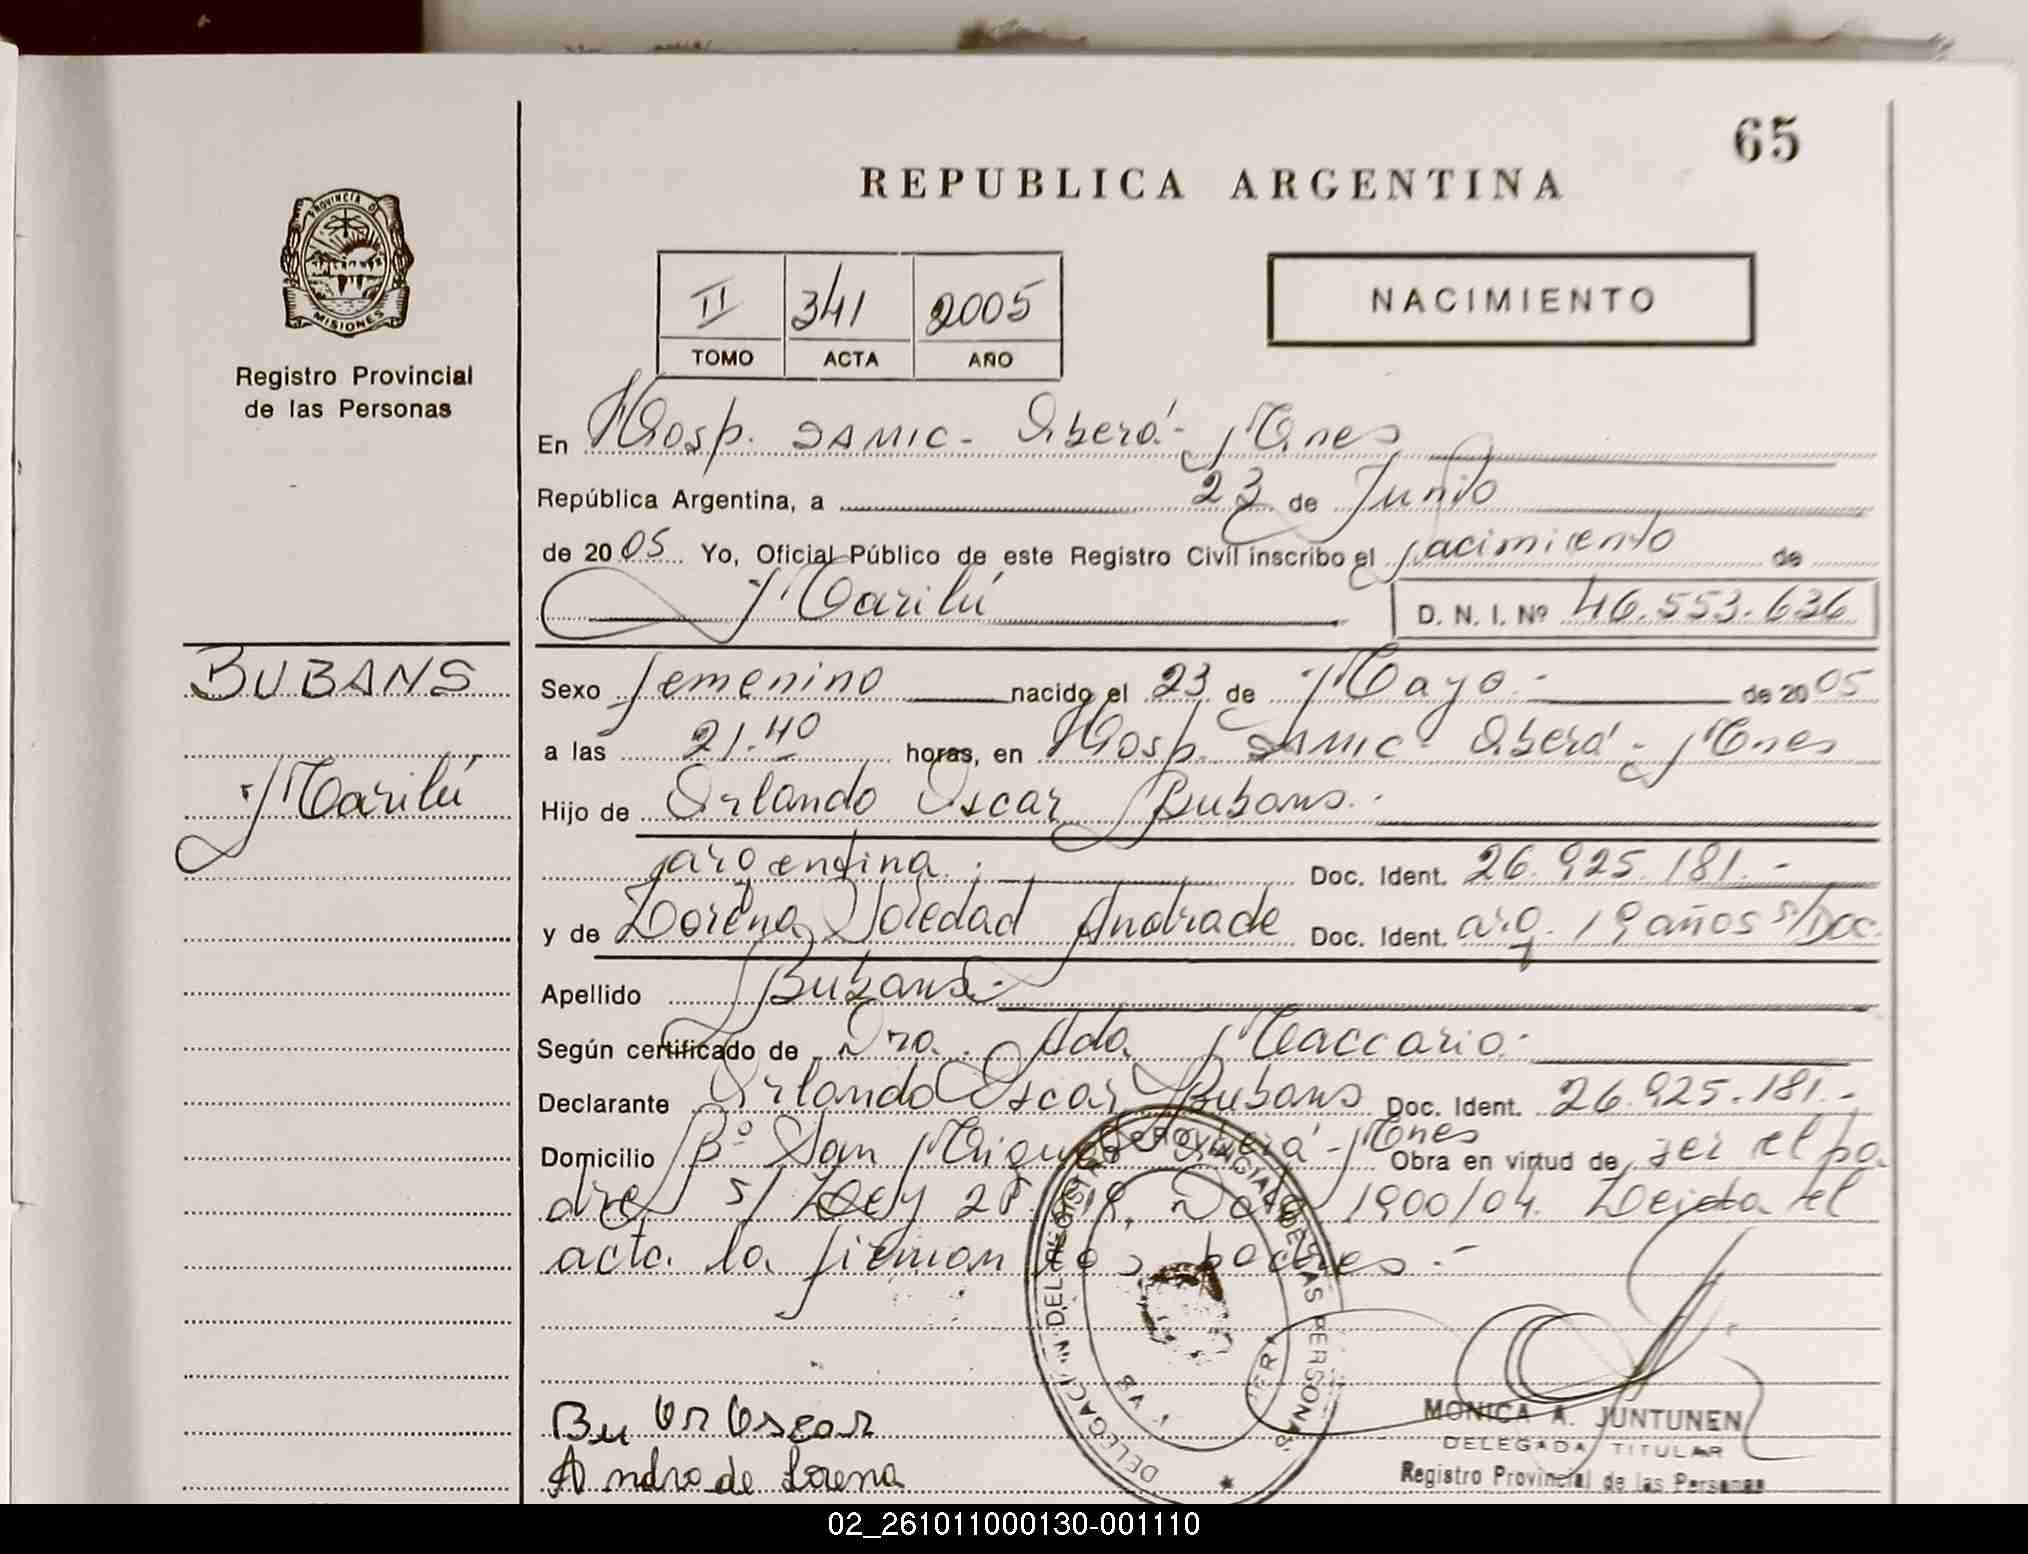 65
REPUBLICA ARGENTINA
PROVINCIA D
MISIONES
Registro Provincial
de las Personas
II 341 2005
TOMO ACTA AÑO
NACIMIENTO
En Hosp. SAMIC - Oberá - Mnes
República Argentina, a 23 de Junio
de 2005 Yo, Oficial Público de este Registro Civil inscribo el nacimiento de
Marilú D. N. I. Nº 46.553.636
BUBANS
Marilú
Sexo femenino nacido el 23 de Mayo.- de 2005
a las 21.40 horas, en Hosp. SAMIC - Oberá - Mnes
Hijo de Orlando Oscar Bubans.-
argentina.- Doc. Ident. 26.925.181.-
y de Lorena Soledad Andrade Doc. Ident. arg. 19 años s/Doc.
Apellido Bubans.-
Según certificado de Dra. Ada Maccario.-
Declarante Orlando Oscar Bubans Doc. Ident. 26.925.181.-
Domicilio Bº San Miguel Oberá - Mnes Obra en virtud de ser el pa
dre s/ Ley 1900/04. el
acta la firman los padres.-
Bu Or Oscar
Andrade Lorena
DELEGACION DEL REGISTRO PROVINCIAL DE LAS PERSONAS
MONICA A. JUNTUNEN
DELEGADA TITULAR
Registro Provincial de las Personas
02_261011000130-001110